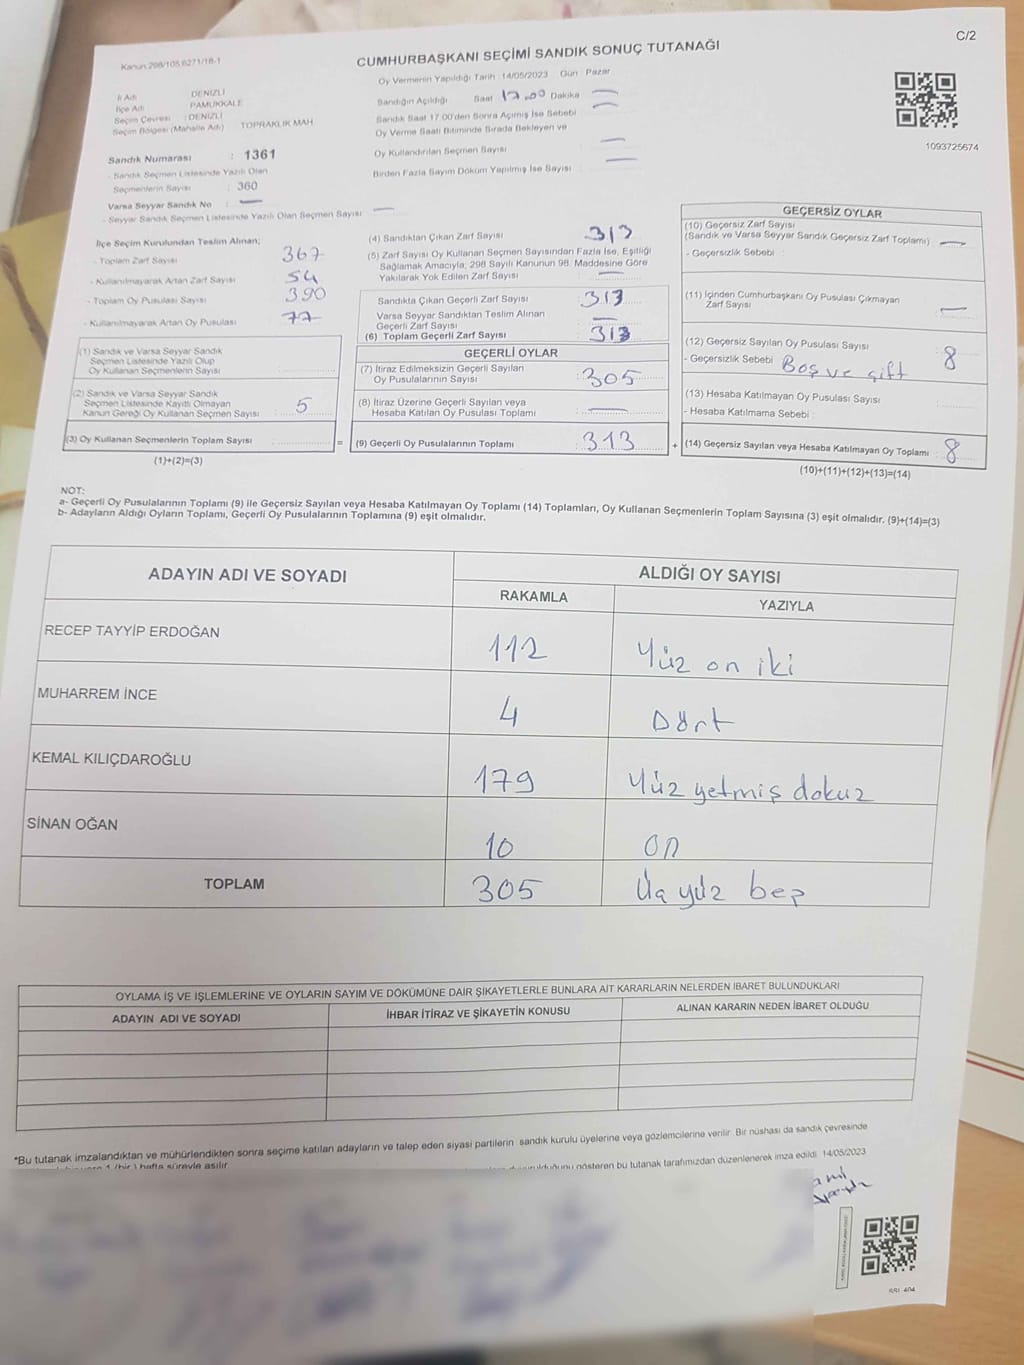 C/2
Kanun 298/105,6271/18-1
CUMHURBAŞKANI SEÇİMİ SANDIK SONUÇ TUTANAĞI
Oy Vermenin Yapıldığı Tarih : 14/05/2023 Gün : Pazar
İl Adı DENİZLİ
İlçe Adı PAMUKKALE
Seçim Çevresi : DENİZLİ
Seçim Bölgesi (Mahalle Adı) TOPRAKLIK MAH.
Sandığın Açıldığı Saat 17.00 Dakika —
Sandık Saat 17.00'den Sonra Açılmış İse Sebebi —
Oy Verme Saati Bitiminde Sırada Bekleyen ve
Oy Kullandırılan Seçmen Sayısı —
Birden Fazla Sayım Döküm Yapılmış İse Sayısı —
1093725674
Sandık Numarası : 1361
- Sandık Seçmen Listesinde Yazılı Olan
Seçmenlerin Sayısı : 360
Varsa Seyyar Sandık No : —
- Seyyar Sandık Seçmen Listesinde Yazılı Olan Seçmen Sayısı : —
İlçe Seçim Kurulundan Teslim Alınan;
- Toplam Zarf Sayısı 367
- Kullanılmayarak Artan Zarf Sayısı 54
- Toplam Oy Pusulası Sayısı 390
- Kullanılmayarak Artan Oy Pusulası 77
(1) Sandık ve Varsa Seyyar Sandık
Seçmen Listesinde Yazılı Olup
Oy Kullanan Seçmenlerin Sayısı :
(2) Sandık ve Varsa Seyyar Sandık
Seçmen Listesinde Kayıtlı Olmayan
Kanun Gereği Oy Kullanan Seçmen Sayısı : 5
(3) Oy Kullanan Seçmenlerin Toplam Sayısı : =
(1)+(2)=(3)
(4) Sandıktan Çıkan Zarf Sayısı : 313
(5) Zarf Sayısı Oy Kullanan Seçmen Sayısından Fazla İse, Eşitliği
Sağlamak Amacıyla, 298 Sayılı Kanunun 98. Maddesine Göre
Yakılarak Yok Edilen Zarf Sayısı : —
Sandıkta Çıkan Geçerli Zarf Sayısı : 313
Varsa Seyyar Sandıktan Teslim Alınan
Geçerli Zarf Sayısı : —
(6) Toplam Geçerli Zarf Sayısı : 313
GEÇERLİ OYLAR
(7) İtiraz Edilmeksizin Geçerli Sayılan
Oy Pusulalarının Sayısı : 305
(8) İtiraz Üzerine Geçerli Sayılan veya
Hesaba Katılan Oy Pusulası Toplamı : —
(9) Geçerli Oy Pusulalarının Toplamı : 313 +
GEÇERSİZ OYLAR
(10) Geçersiz Zarf Sayısı
(Sandık ve Varsa Seyyar Sandık Geçersiz Zarf Toplamı) : —
- Geçersizlik Sebebi :
(11) İçinden Cumhurbaşkanı Oy Pusulası Çıkmayan
Zarf Sayısı : —
(12) Geçersiz Sayılan Oy Pusulası Sayısı : 8
- Geçersizlik Sebebi : Boş ve çift
(13) Hesaba Katılmayan Oy Pusulası Sayısı :
- Hesaba Katılmama Sebebi :
(14) Geçersiz Sayılan veya Hesaba Katılmayan Oy Toplamı : 8
(10)+(11)+(12)+(13)=(14)
NOT:
a- Geçerli Oy Pusulalarının Toplamı (9) ile Geçersiz Sayılan veya Hesaba Katılmayan Oy Toplamı (14) Toplamları, Oy Kullanan Seçmenlerin Toplam Sayısına (3) eşit olmalıdır. (9)+(14)=(3)
b- Adayların Aldığı Oyların Toplamı, Geçerli Oy Pusulalarının Toplamına (9) eşit olmalıdır.
ADAYIN ADI VE SOYADI ALDIĞI OY SAYISI
RAKAMLA YAZIYLA
RECEP TAYYİP ERDOĞAN 112 Yüz on iki
MUHARREM İNCE 4 Dört
KEMAL KILIÇDAROĞLU 179 Yüz yetmiş dokuz
SİNAN OĞAN 10 on
TOPLAM 305 Üç yüz beş
OYLAMA İŞ VE İŞLEMLERİNE VE OYLARIN SAYIM VE DÖKÜMÜNE DAİR ŞİKAYETLERLE BUNLARA AİT KARARLARIN NELERDEN İBARET BULUNDUKLARI
ADAYIN ADI VE SOYADI İHBAR İTİRAZ VE ŞİKAYETİN KONUSU ALINAN KARARIN NEDEN İBARET OLDUĞU
*Bu tutanak imzalandıktan ve mühürlendikten sonra seçime katılan adayların ve talep eden siyasi partilerin sandık kurulu üyelerine veya gözlemcilerine verilir. Bir nüshası da sandık çevresinde
1 (bir) hafta süreyle asılır.
gösteren bu tutanak tarafımızdan düzenlenerek imza edildi. 14/05/2023